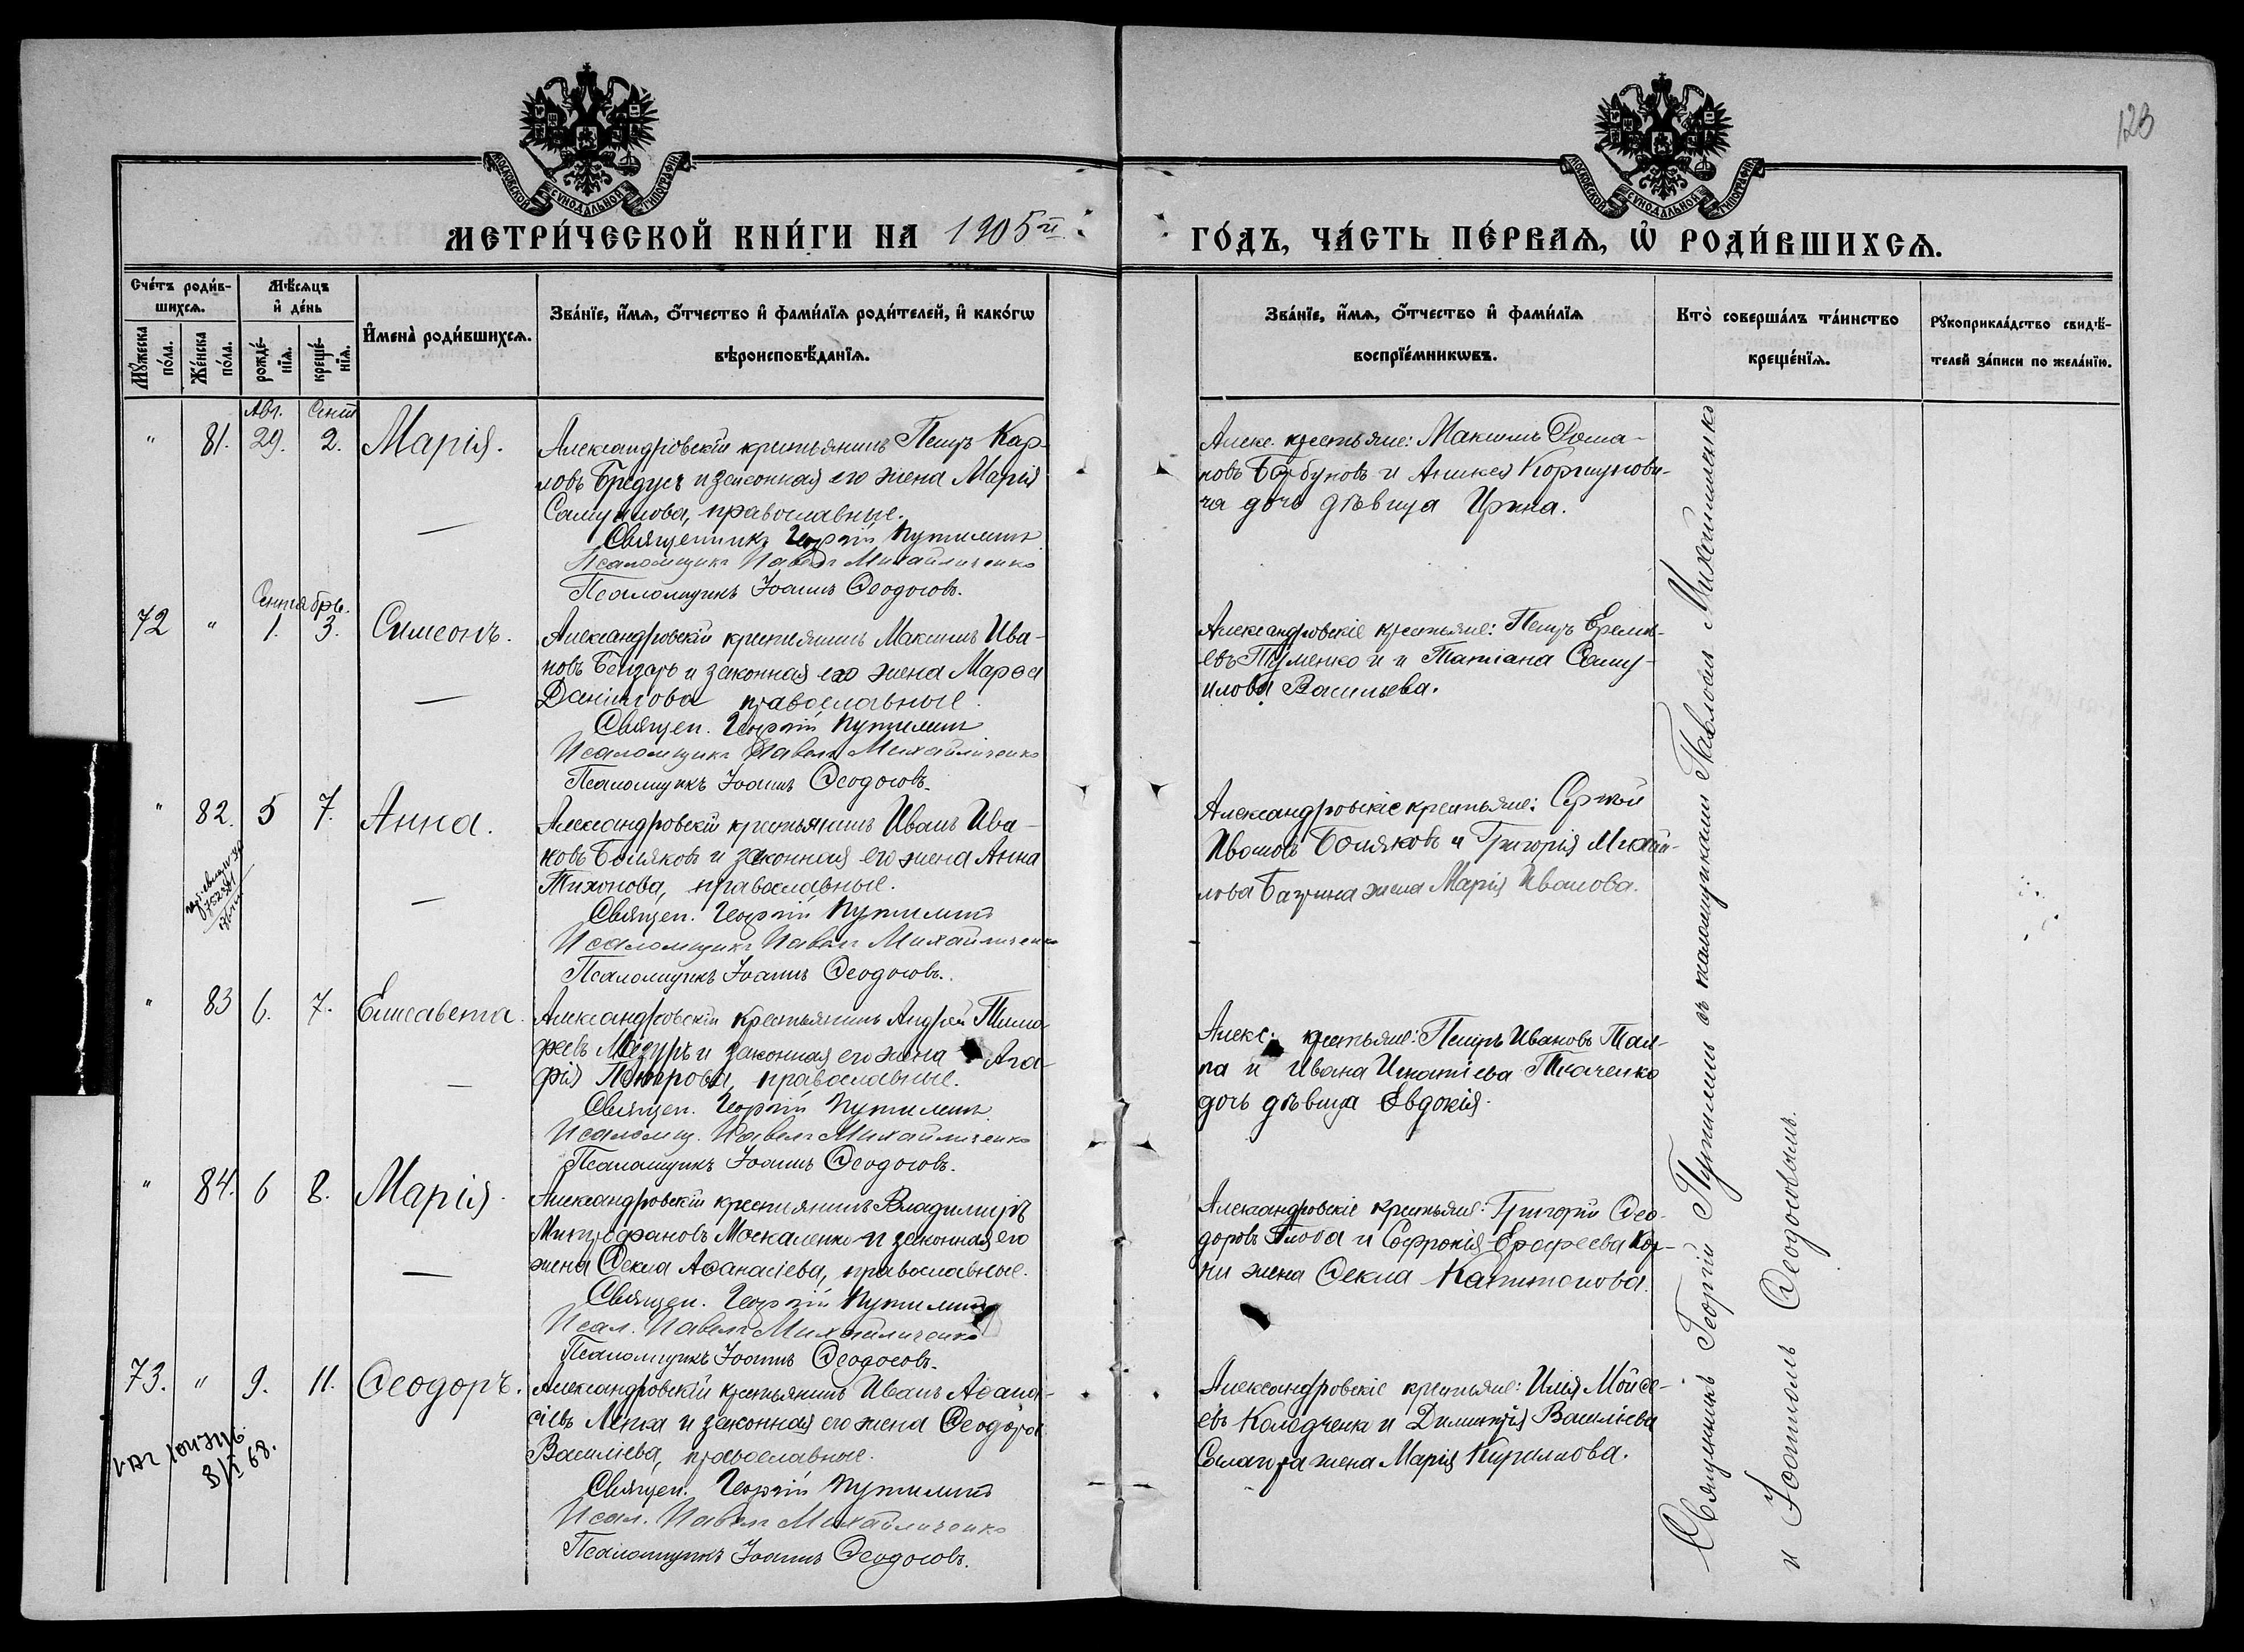 123
МОСКОВСКОЙ СѴНОДАЛЬНОЙ ТИПОГРАФІИ
МОСКОВСКОЙ СѴНОДАЛЬНОЙ ТИПОГРАФІИ
МЕТРИ́ЧЕСКОЙ КНИ́ГИ НА 1905й
ГО́ДЪ, ЧА́СТЬ ПЕ́РВАѦ, Ѡ҆ РОДИ́ВШИХСѦ.
Сче́тъ роди́в-
шихсѧ.
Мѹ́жеска по́ла.
Же́нска по́ла.
Мѣ́сѧцъ
и҆ де́нь
рожде́-
нїѧ.
креще́-
нїѧ.
И҆мена̀ роди́вшихсѧ.
Зва́нїе, и҆́мѧ, ѻ҆́тчество и҆ фами́лїѧ роди́телей, и҆ како́гѡ
вѣроисповѣ́данїѧ.
Зва́нїе, и҆́мѧ, ѻ҆́тчество и҆ фами́лїѧ
воспрїе́мникѡвъ.
Кто̀ соверша́лъ та́инство
креще́нїѧ.
Рѹкоприкла́дство свидѣ́-
телей за́писи по жела́нїю.
Авг. Сент
" 81. 29. 2. Марія.
Александровскій крестьянинъ Петръ Кар-
ловъ Бредусъ и законная его жена Марія
Самуилова, православные.
Священникъ Георгій Путилинъ
Псаломщикъ Павелъ Михайличенко
Псаломщикъ Іоаннъ Ѳеодосовъ.
Алекс. крестьяне: Максимъ Рома-
новъ Барбуновъ и Аникея Коршунови-
ча дочь дѣвица Ирина.
Сентябрь.
72 " 1. 3. Симеонъ.
Александровскій крестьянинъ Максимъ Ива-
новъ Бенгаръ и законная его жена Марѳа
Даніилова православные.
Священ. Георгій Путилинъ
Псаломщикъ Павелъ Михайличенко
Псаломщикъ Іоаннъ Ѳеодосовъ.
Александровскіе крестьяне: Петръ Еремѣ-
евъ Туменко и и Татіана Саму-
илова Васильева.
" 82. 5 7. Анна.
Александровскій крестьянинъ Иванъ Ива-
новъ Боляковъ и законная его жена Анна
Тихонова, православные.
Священ. Георгій Путилинъ
Псаломщикъ Павелъ Михайличенко
Псаломщикъ Іоаннъ Ѳеодосовъ.
Александровскіе крестьяне: Сергѣй
Ивановъ Боляковъ и Григорія Михай-
лова Базгина жена Марія Иванова.
" 83 6. 7. Елисавета.
Александровскій крестьянинъ Андрей Тимо-
феевъ Мазуръ и законная его жена Ага-
фія Петрова, православные.
Священ. Георгій Путилинъ
Псаломщ. Павелъ Михайличенко
Псаломщикъ Іоаннъ Ѳеодосовъ.
Алекс. крестьяне: Петръ Ивановъ Тал-
па и Ивана Игнатіева Ткаченко
дочь дѣвица Евдокія.
" 84. 6 8. Марія.
Александровскій крестьянинъ Владимиръ
Митрофановъ Москаленко и законная его
жена Ѳекла Аѳанасіева, православные.
Священ. Георгій Путилинъ
Псал. Павелъ Михайличенко
Псаломщикъ Іоаннъ Ѳеодосовъ.
Александровскіе крестьяне: Григорій Ѳео-
доровъ Глоба и Софронія Ерофеева Кор-
чи жена Ѳекла Капитонова.
73. " 9. 11. Ѳеодоръ.
8/I 68.
Александровскій крестьянинъ Иванъ Аѳана-
сіевъ Лепка и законная его жена Ѳеодора
Василіева, православные.
Священ. Георгій Путилинъ
Псал. Павелъ Михайличенко
Псаломщикъ Іоаннъ Ѳеодосовъ.
Александровскіе крестьяне: Илья Мойсе-
евъ Колодченко и Димитрія Василіева
жена Марія Кириллова.
Священникъ Георгій Путилинъ съ псаломщиками Павломъ Михайличенко
и Іоанномъ Ѳеодосовымъ.